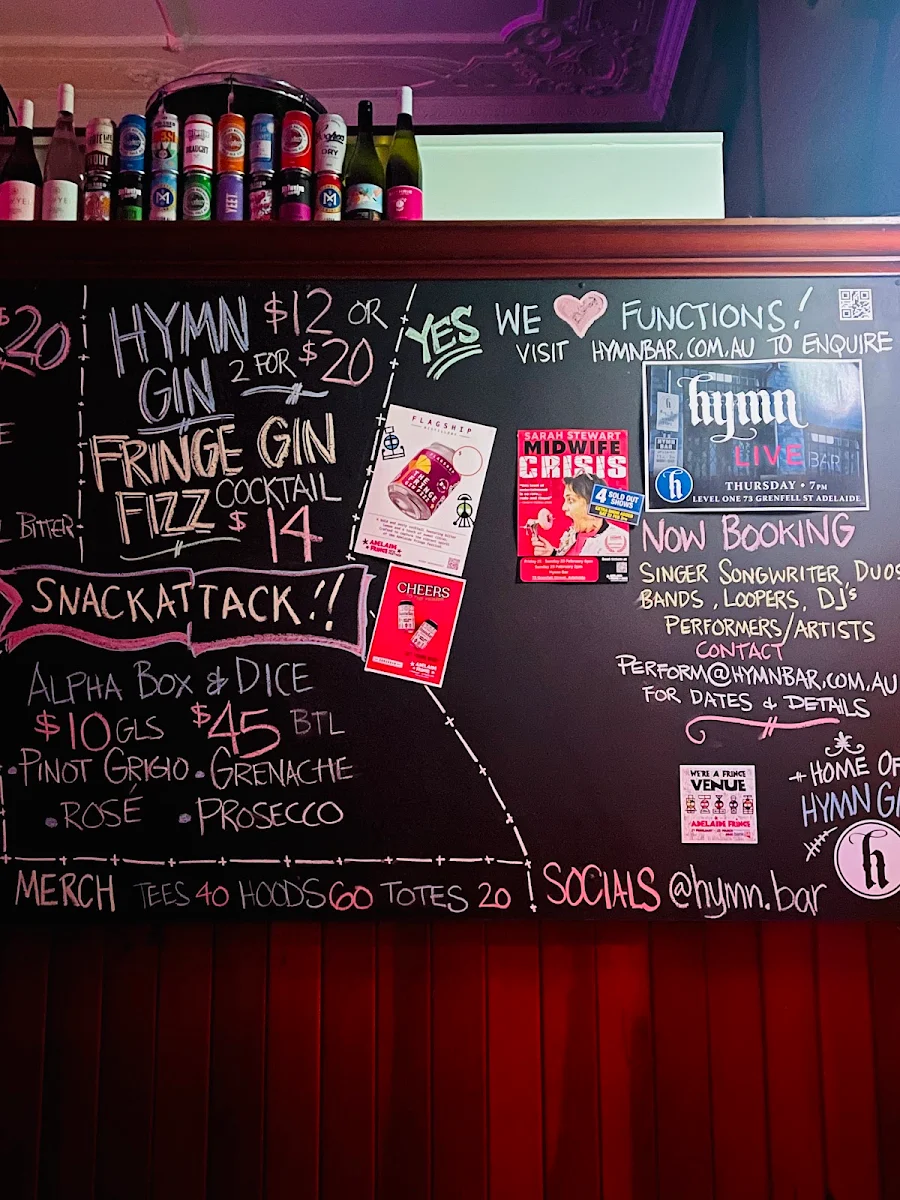 YEET
DRY
$20
HYMN
GIN
$12 OR
2 FOR $20
FRINGE GIN
FIZZ COCKTAIL
$14
BITTER
SNACKATTACK!!
ALPHA BOX & DICE
$10 GLS $45 BTL
• PINOT GRIGIO • GRENACHE
• ROSÉ • PROSECCO
MERCH TEES 40 HOODS 60 TOTES 20
YES WE FUNCTIONS!
VISIT HYMNBAR.COM.AU TO ENQUIRE
FLAGSHIP
THE FRINGE
ADELAIDE FRINGE
CHEERS
ADELAIDE FRINGE
SARAH STEWART
MIDWIFE
CRISIS
4 SOLD OUT
SHOWS
hymn
LIVE BAR
THURSDAY • 7PM
LEVEL ONE 73 GRENFELL ST ADELAIDE
h
NOW BOOKING
SINGER SONGWRITER, DUOS
BANDS, LOOPERS, DJ's
PERFORMERS/ARTISTS
CONTACT
PERFORM@HYMNBAR.COM.AU
FOR DATES & DETAILS
WE'RE A FRINGE
VENUE
ADELAIDE FRINGE
HOME OF
HYMN GA
h
SOCIALS @hymn.bar